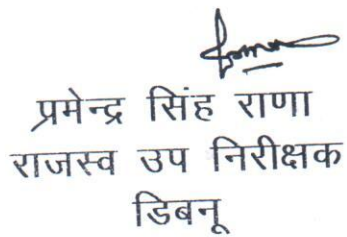 प्रमेन्द्र सिंह राणा
राजस्व उप निरीक्षक
डिबनू